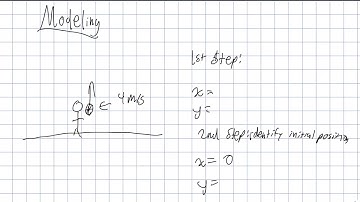 Modeling
4 m/s
1st Step:
x =
y =
2nd Step: identify initial position
x = 0
y =